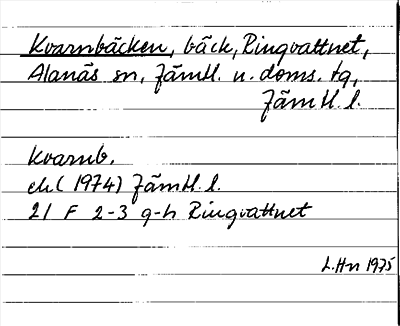 Kvarnbäcken, bäck, Ringvattnet,
Alanäs sn, Jämtl. n. doms. tg,
Jämtl. l.
Kvarnb.
ek (1974) Jämtl. l.
21 F 2-3 g-h Ringvattnet
L.Hn 1975